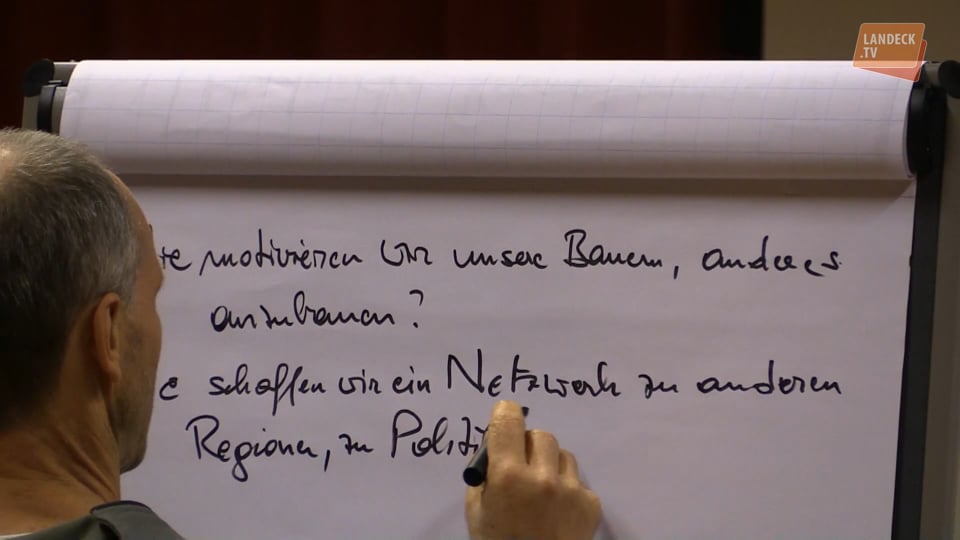 LANDECK
.TV
motivieren wir unsere Bauern, anderes
anzubauen?
schaffen wir ein Netzwerk zu anderen
Regionen, zu